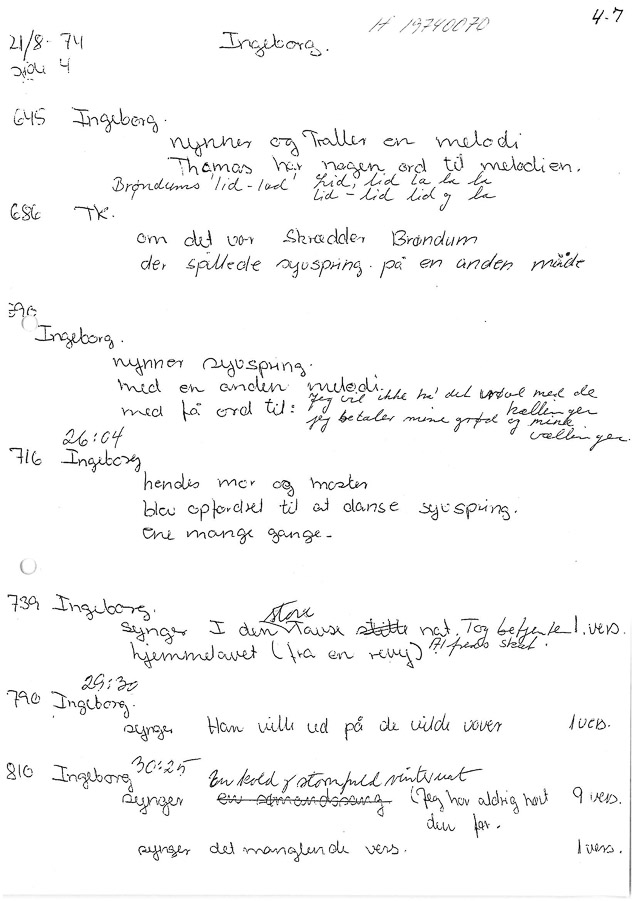 H 19740070
4-7
21/8-74 Ingeborg.
side 4
645 Ingeborg.
nynner og Traller en melodi
Thomas har nogen ord til melodien.
Brøndums 'lid-lad' lid, lid la la la
lid-lid lid og la
686 TK.
om det var Skrædder Brøndum
der spillede syvspring på en anden måde
Ingeborg.
nynner syvspring.
med en anden melodi.
med få ord til: Jeg vil ikke ha' det vrøvl med de kællinger
jeg betaler mine grød og mine vællinger.
26:04
716 Ingeborg
hendes mor og moster
blev opfordret til at danse syvspring.
ene mange gange-
739 Ingeborg.
store
synger I den Tause stille nat. Tog betjente 1. vers.
hjemmelavet (fra en revy)
29:30
790 Ingeborg.
synger Han ville ud på de vilde vover 1 vers.
810 Ingeborg 30:25 En kold og stormfuld vinternat
synger en sømandssang (Jeg har aldrig hørt 9 vers.
den før.
synger det manglende vers. 1 vers.